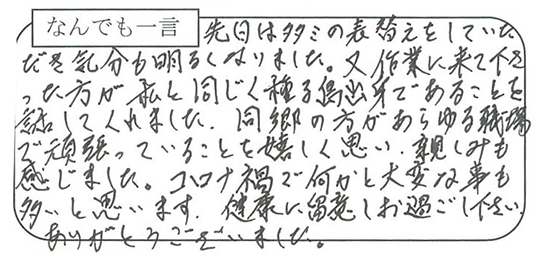 なんでも一言
先日はタタミの表替えをしていた
だき気分も明るくなりました。又作業に来て下さ
った方が私と同じく種子島出身であることを
話してくれました。同郷の方があらゆる職場
で頑張っていることを嬉しく思い、親しみも
感じました。コロナ禍で何かと大変な事も
多いと思います。健康に留意しお過ごし下さい。
ありがとうございました。